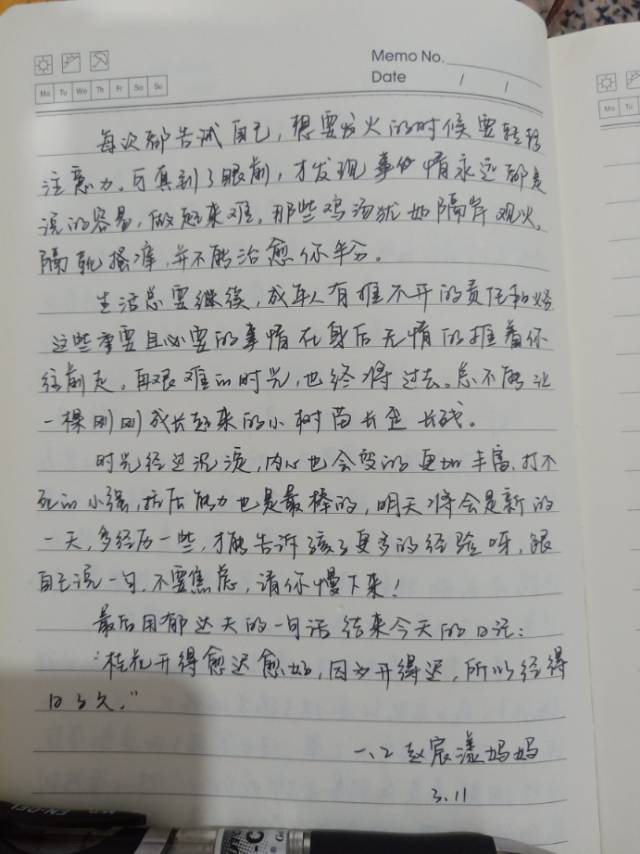 Memo No.
Date / /
Mo Tu We Th Fr Sa Su
每次都告诫自己,想要发火的时候要转移
注意力。可真到了眼前,才发现事情永远都是
说的容易,做起来难,那些鸡汤犹如隔岸观火,
隔靴搔痒,并不能治愈你半分。
生活总要继续,成年人有推不开的责任和
这些重要且必要的事情在身后无情的推着你
往前走,再艰难的时光,也终将过去。总不能让
一棵刚刚成长起来的小树苗长歪长残。
时光经过沉淀,内心也会变的更加丰富,打不
死的小强,抗压能力也是最棒的,明天将会是新的
一天,多经历一些,才能告诉孩子更多的经验呀,跟
自己说一句,不要焦虑,请你慢下来!
最后用郁达夫的一句话结束今天的日记:
“桂花开得愈迟愈好,因为开得迟,所以经得
日子久。”
一、2 赵宸漾妈妈
3.11
Mo Tu